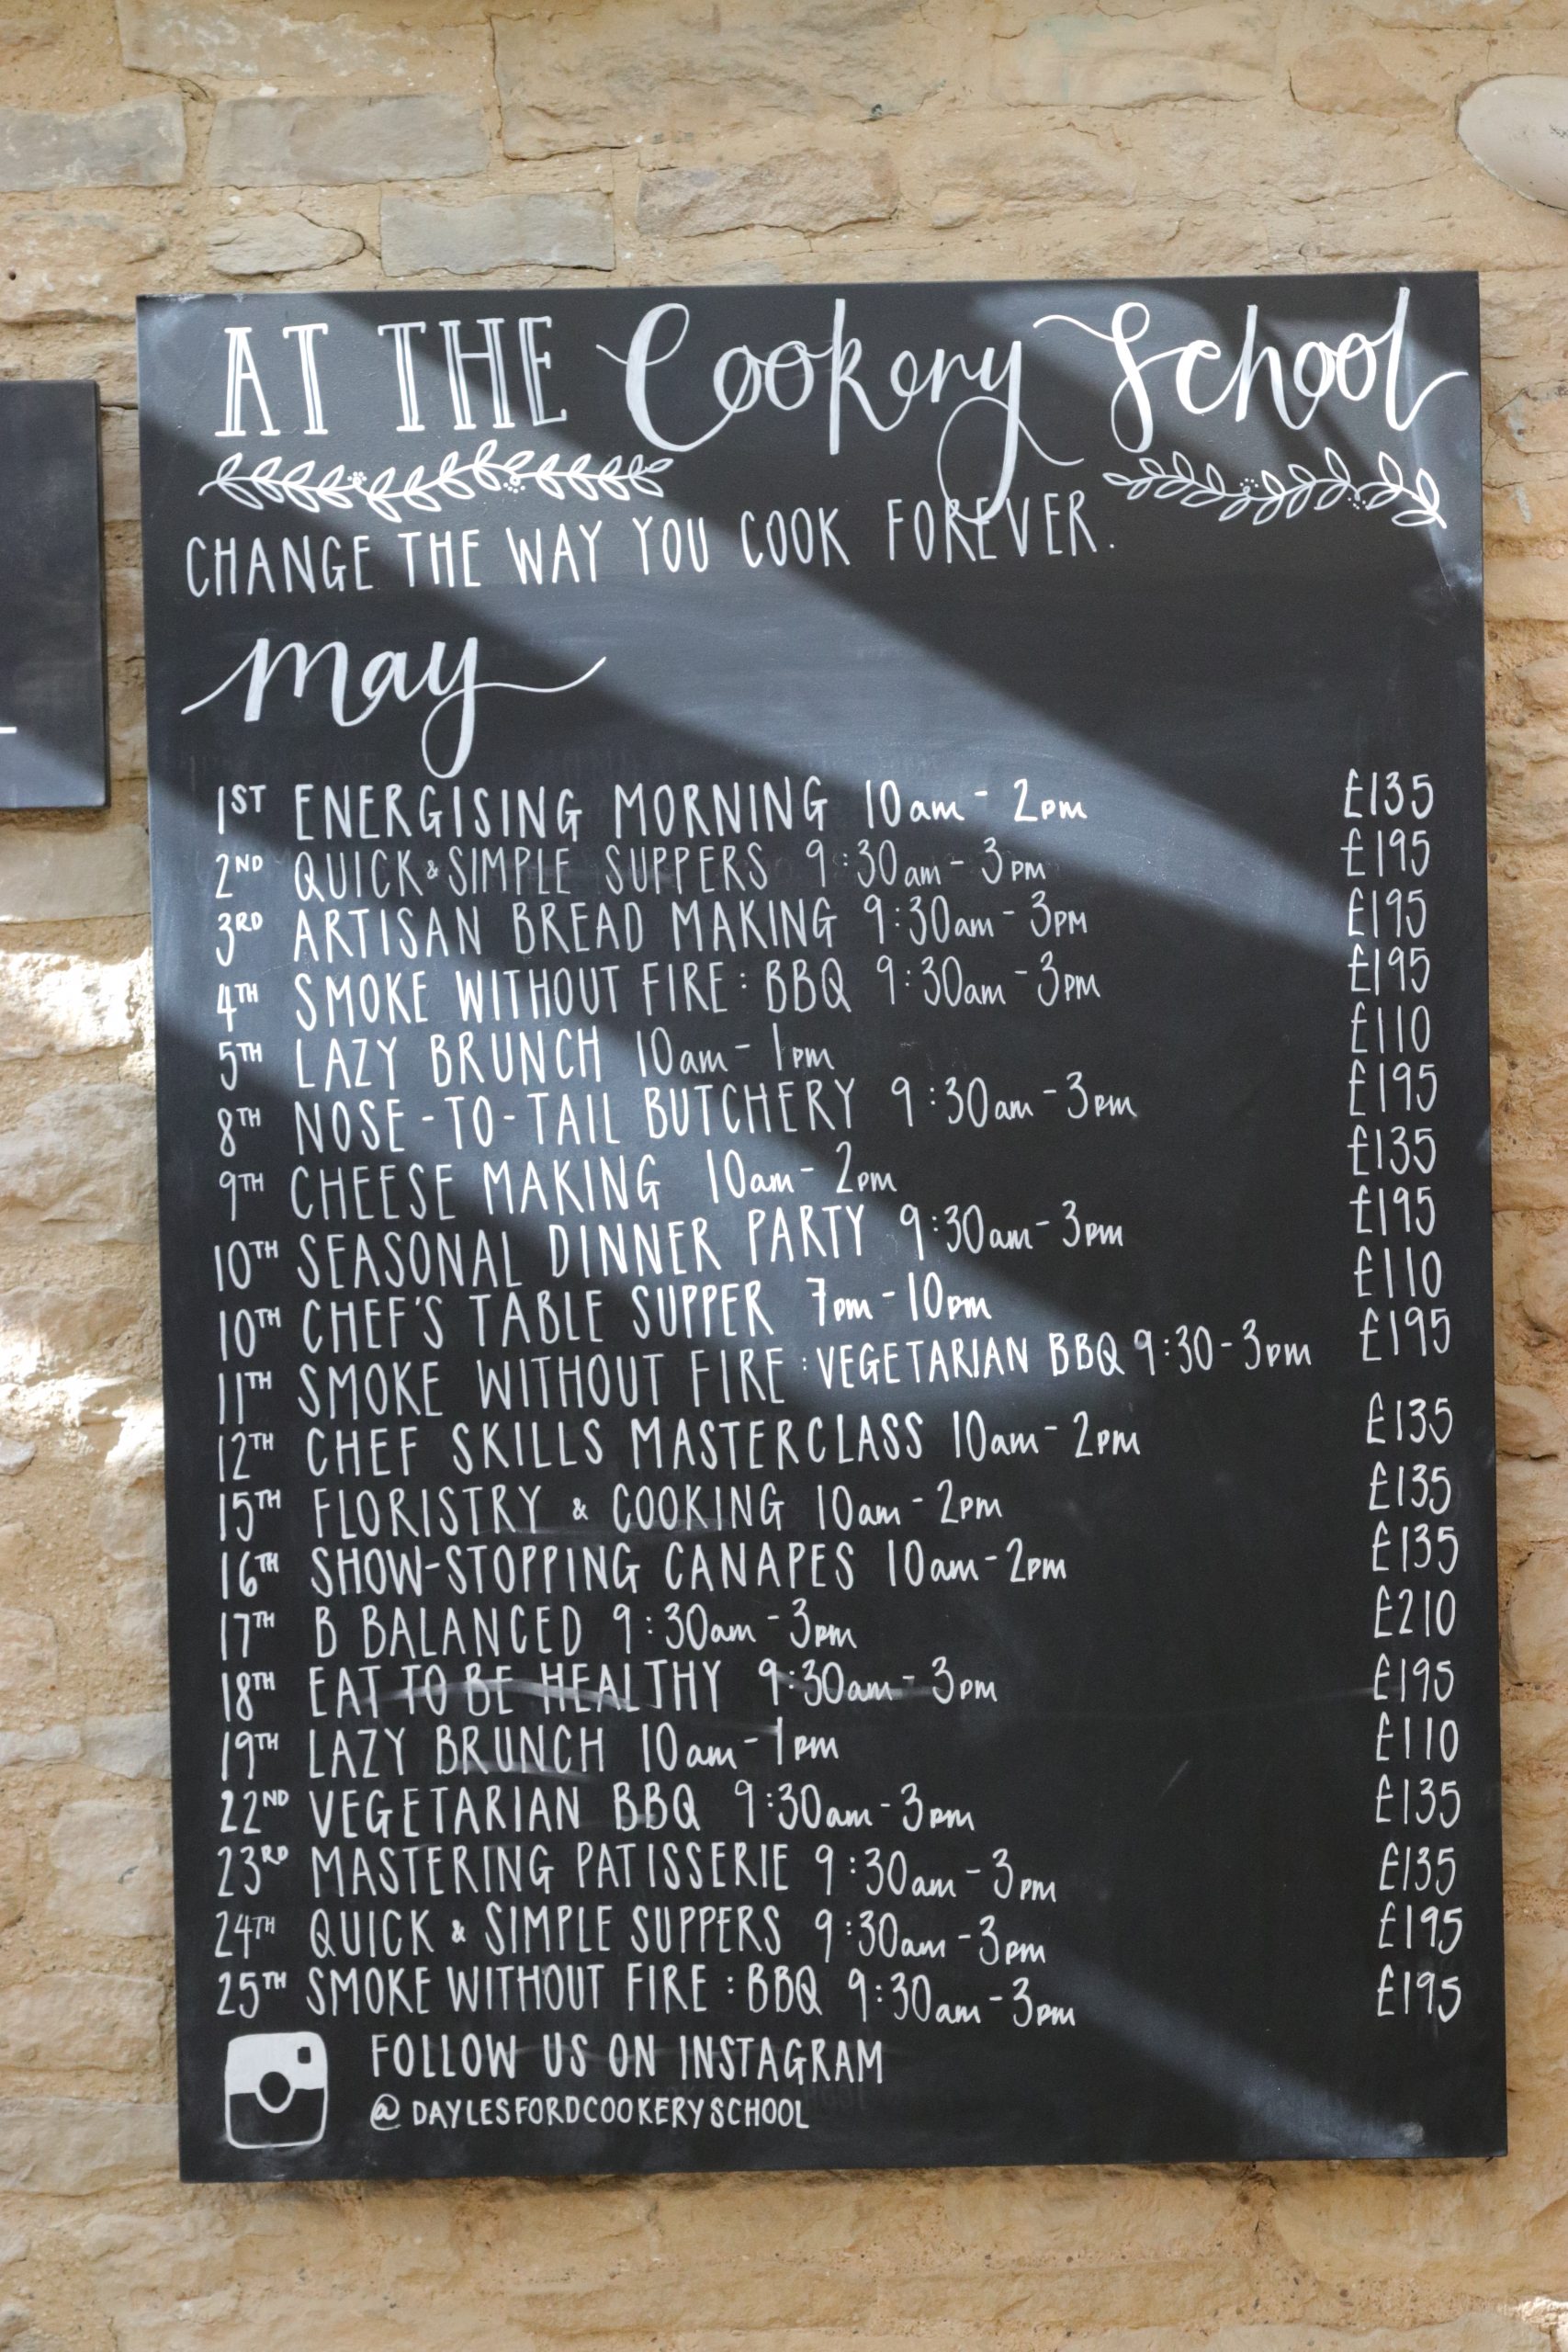 AT THE Cookery School
CHANGE THE WAY YOU COOK FOREVER.
may
1ST ENERGISING MORNING 10am - 2pm £135
2ND QUICK & SIMPLE SUPPERS 9:30am - 3pm £195
3RD ARTISAN BREAD MAKING 9:30am - 3PM £195
4TH SMOKE WITHOUT FIRE : BBQ 9:30am - 3pm £195
5TH LAZY BRUNCH 10am - 1pm £110
8TH NOSE-TO-TAIL BUTCHERY 9:30am - 3pm £195
9TH CHEESE MAKING 10am - 2pm £135
10TH SEASONAL DINNER PARTY 9:30am - 3pm £195
10TH CHEF'S TABLE SUPPER 7pm - 10pm £110
11TH SMOKE WITHOUT FIRE : VEGETARIAN BBQ 9:30 - 3pm £195
12TH CHEF SKILLS MASTERCLASS 10am - 2pm £135
15TH FLORISTRY & COOKING 10am - 2pm £135
16TH SHOW-STOPPING CANAPES 10am - 2pm £135
17TH B BALANCED 9:30am - 3pm £210
18TH EAT TO BE HEALTHY 9:30am - 3pm £195
19TH LAZY BRUNCH 10am - 1pm £110
22ND VEGETARIAN BBQ 9:30am - 3pm £135
23RD MASTERING PATISSERIE 9:30am - 3pm £135
24TH QUICK & SIMPLE SUPPERS 9:30am - 3pm £195
25TH SMOKE WITHOUT FIRE : BBQ 9:30am - 3pm £195
FOLLOW US ON INSTAGRAM
@DAYLESFORDCOOKERYSCHOOL